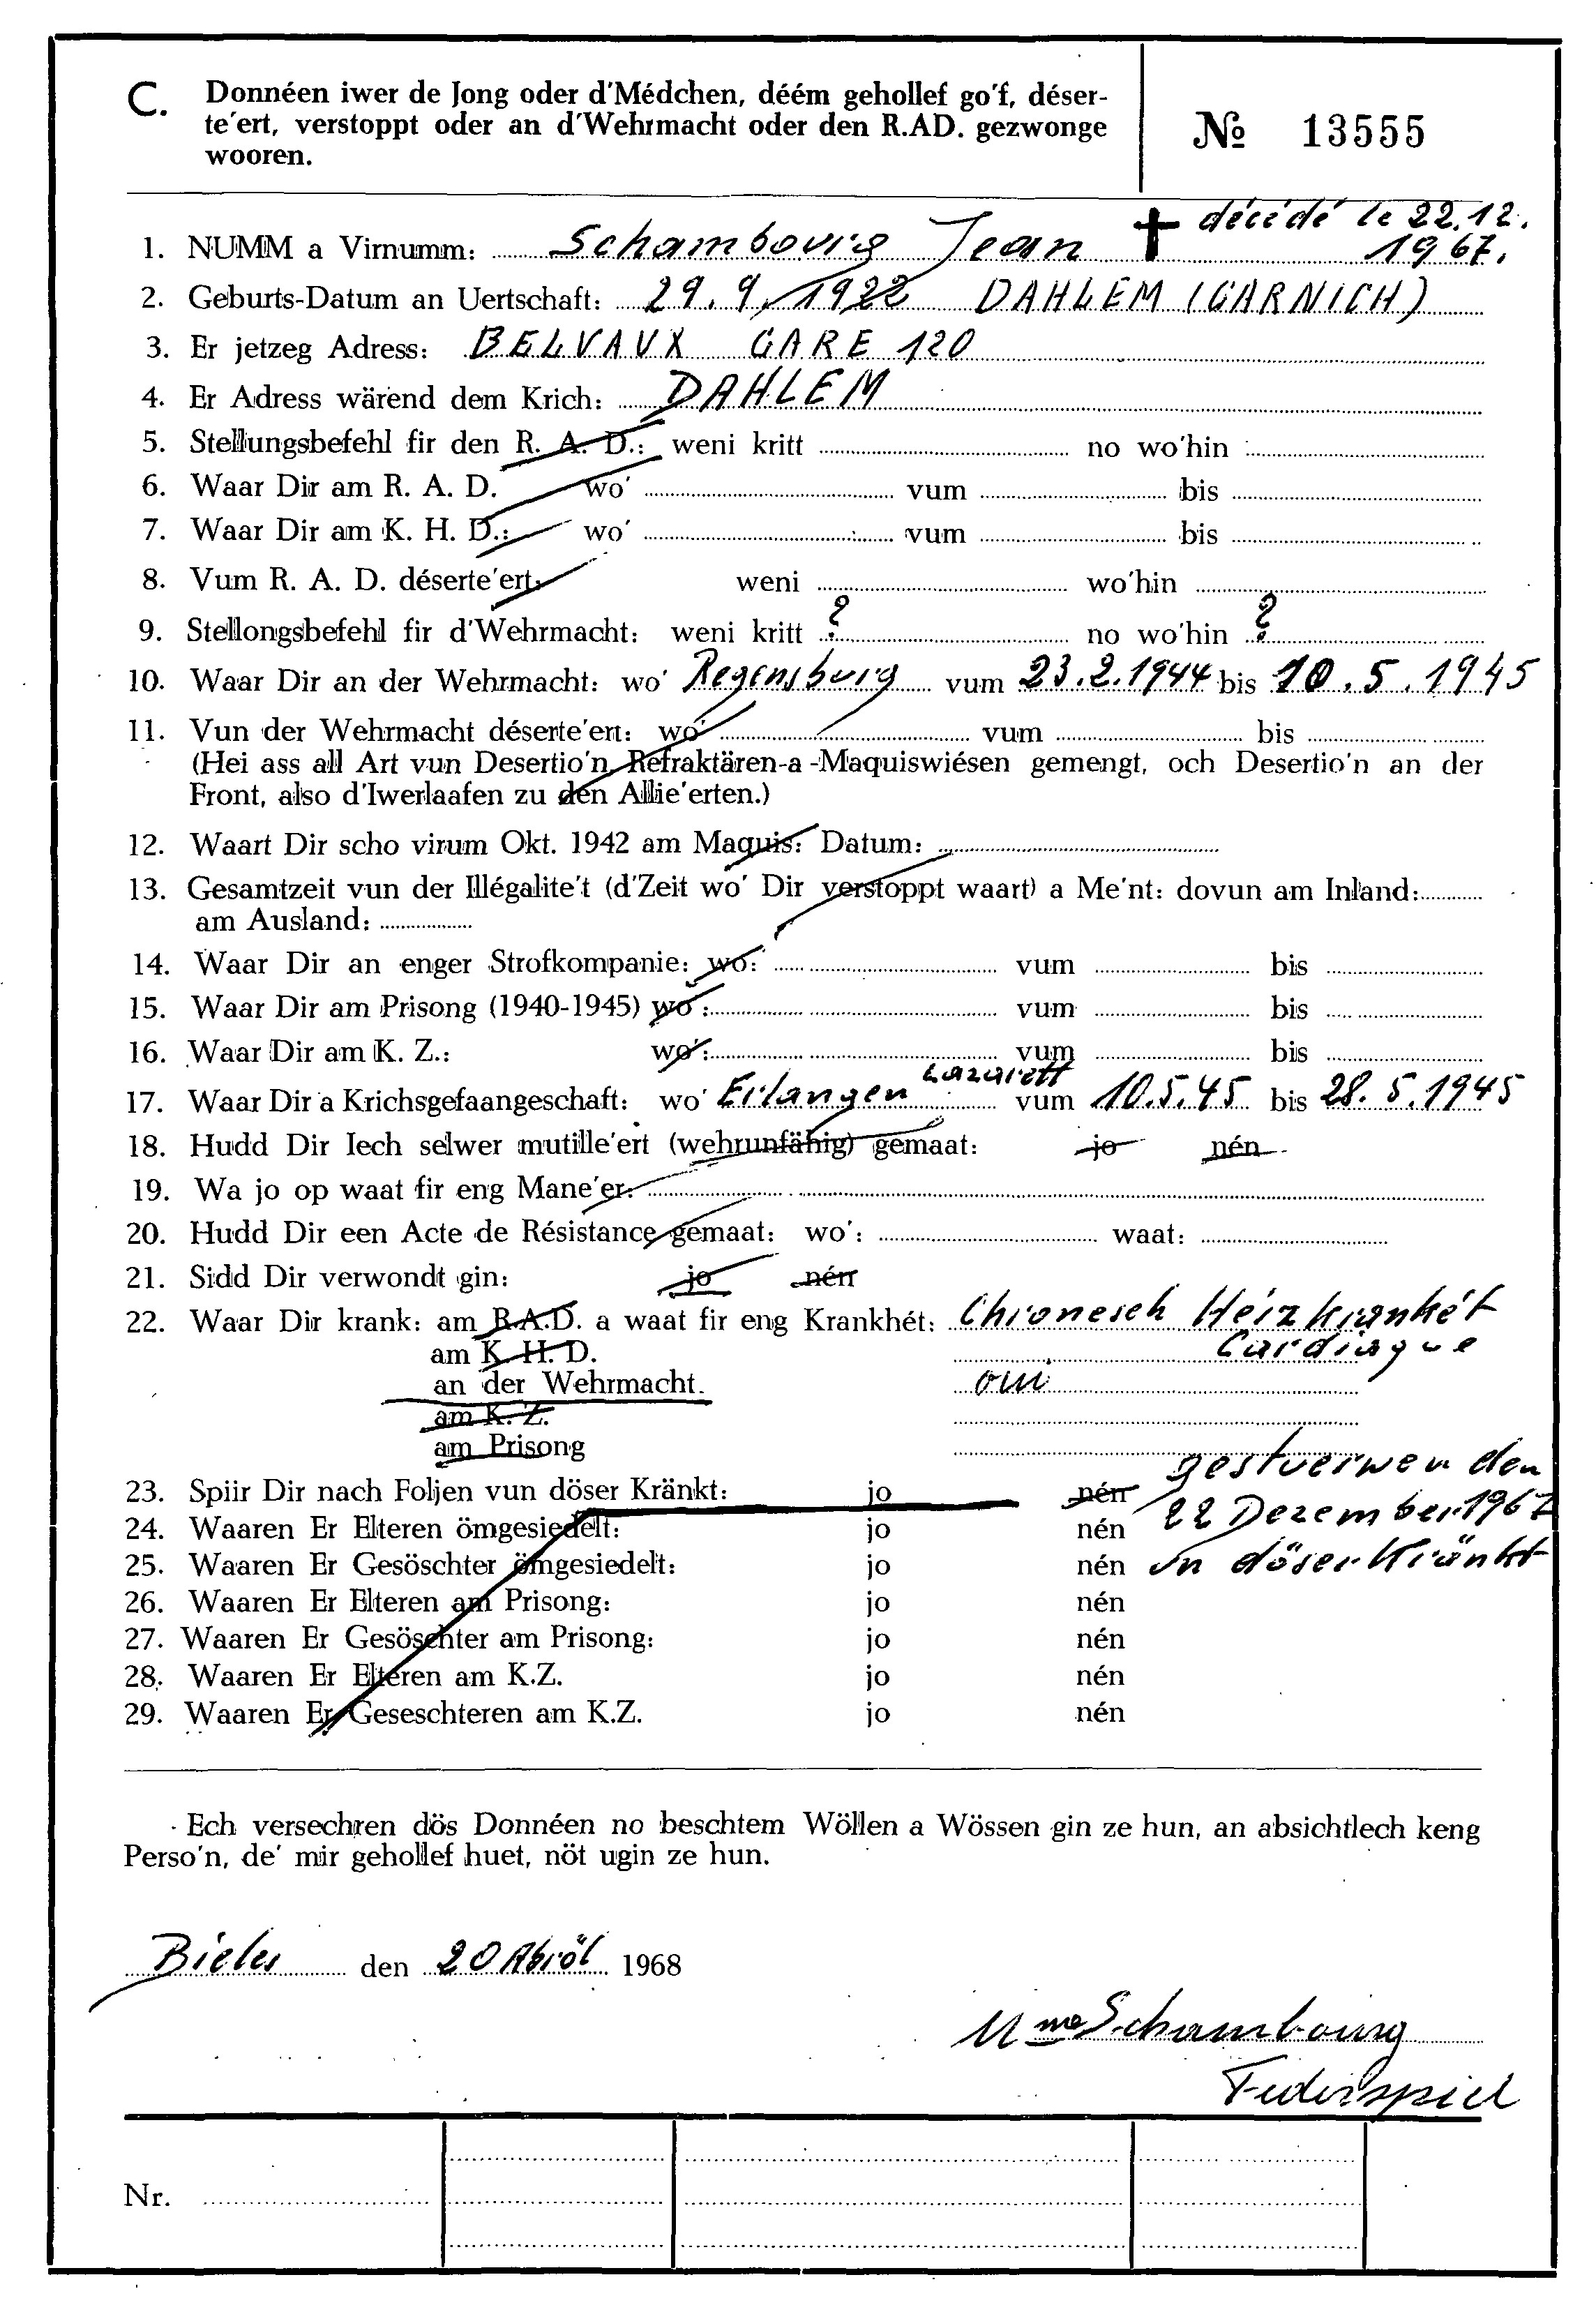 C. Donnéen iwer de Jong oder d'Médchen, déém gehollef go'f, déser-
te'ert, verstoppt oder an d'Wehrmacht oder den R.AD. gezwonge
wooren.
№ 13555
1. NUMM a Virnumm: Schambourg Jean ✝ décédé le 22.12.
1967.
2. Geburts-Datum an Uertschaft: 29.9.1922 DAHLEM (GARNICH)
3. Er jetzeg Adress: BELVAUX GARE 120
4. Er Adress wärend dem Krich: DAHLEM
5. Stellungsbefehl fir den R. A. D.: weni kritt no wo'hin :
6. Waar Dir am R. A. D. wo' vum bis
7. Waar Dir am K. H. D.: wo' vum bis
8. Vum R. A. D. déserte'ert: weni wo'hin
9. Stellongsbefehl fir d'Wehrmacht: weni kritt ? no wo'hin ?
10. Waar Dir an der Wehrmacht: wo' Regensburg vum 23.2.1944 bis 10.5.1945
11. Vun der Wehrmacht déserte'ert: wo' vum bis
(Hei ass all Art vun Desertio'n, Refraktären-a -Maquiswiésen gemengt, och Desertio'n an der
Front, also d'Iwerlaafen zu den Allie'erten.)
12. Waart Dir scho virum Okt. 1942 am Maquis: Datum:
13. Gesamtzeit vun der Illégalite't (d'Zeit wo' Dir verstoppt waart) a Me'nt: dovun am Inland:
am Ausland:
14. Waar Dir an enger Strofkompanie: wo:
vum bis
15. Waar Dir am Prisong (1940-1945) wo : vum bis
16. Waar Dir am K. Z.: wo': vum bis
17. Waar Dir a Krichsgefaangeschaft: wo' Erlangen Lazarett vum 10.5.45 bis 28.5.1945
18. Hudd Dir Iech selwer mutille'ert (wehrunfähig) gemaat: jo nén
19. Wa jo op waat fir eng Mane'er:
20. Hudd Dir een Acte de Résistance gemaat: wo': waat:
21. Sidd Dir verwondt gin: jo nén
22. Waar Dir krank: am R.A.D. a waat fir eng Krankhét: Chronesch Hèizkrankét
am K. H. D. Cardiaque
an der Wehrmacht. oui
am K. Z.
am Prisong
23. Spiir Dir nach Foljen vun döser Kränkt: jo nén gestuerwen den
24. Waaren Er Elteren ömgesiedelt: jo nén 22 Dezember 1967
25. Waaren Er Gesöschter ömgesiedelt: jo nén un döser Kränkt
26. Waaren Er Elteren am Prisong: jo nén
27. Waaren Er Gesöschter am Prisong: jo nén
28. Waaren Er Elteren am K.Z. jo nén
29. Waaren Er Geseschteren am K.Z. jo nén
Ech versechren dös Donnéen no beschtem Wöllen a Wössen gin ze hun, an absichtlech keng
Perso'n, de' mir gehollef huet, nöt ugin ze hun.
Bieles den 20 Abröl 1968
Mme Schambourg
Federspiel
Nr.